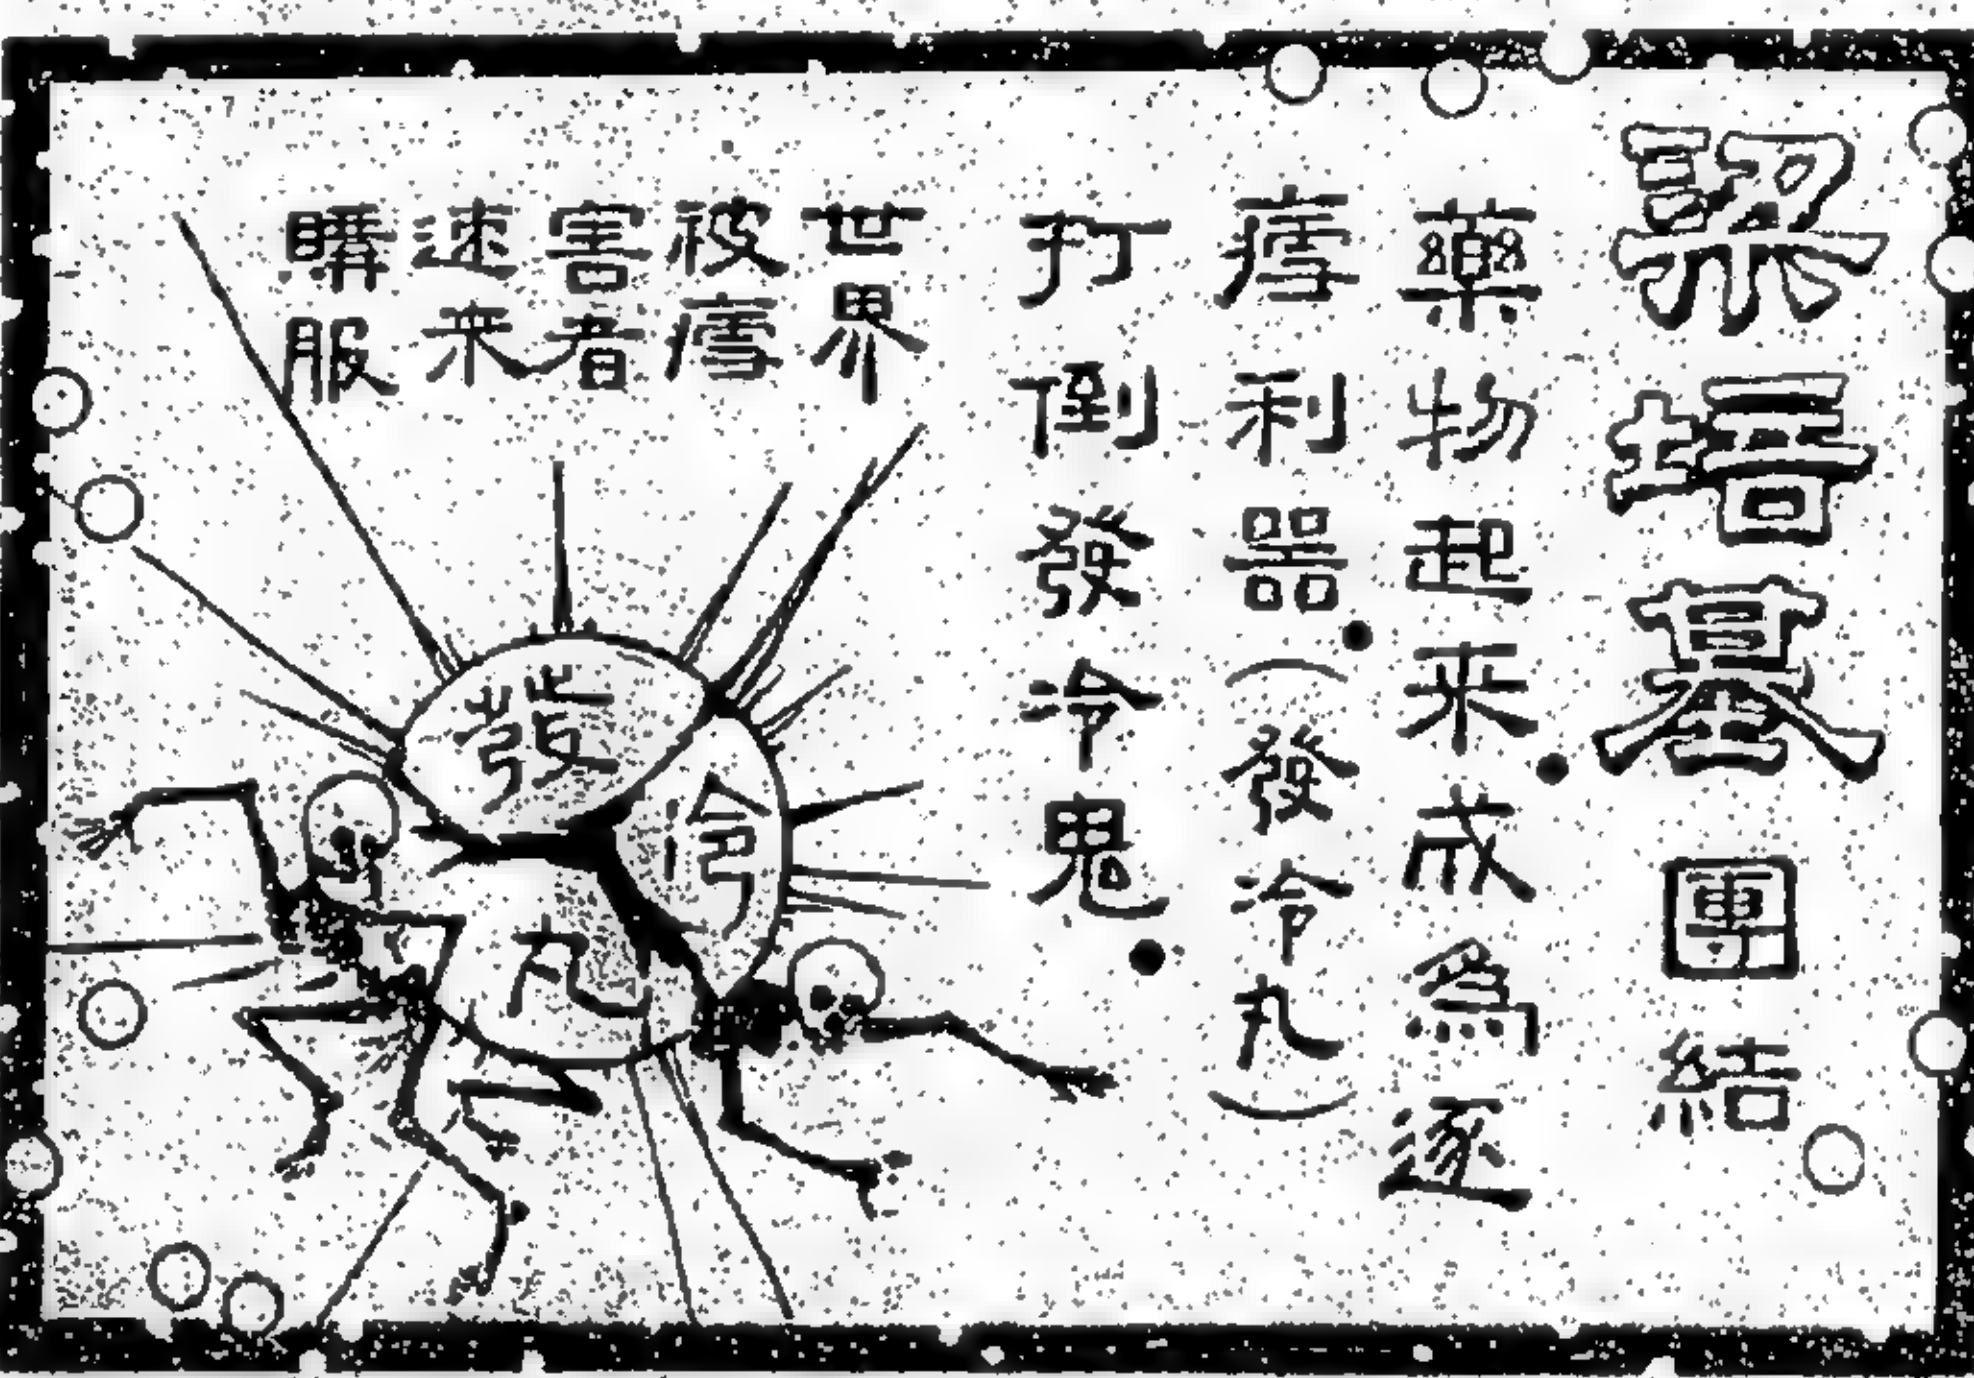 梁培基團結
藥物起来。成為逐
瘧利器。（發冷丸）
打倒發冷鬼。
世界
被瘧
害者
速来
購服
發
冷
丸